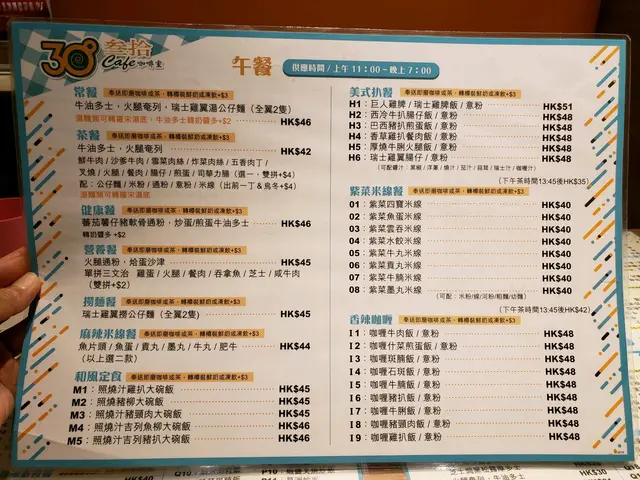 30°
叁拾
Cafe 咖啡室
午餐
供應時間/上午11:00~晚上7:00
常餐 奉送即磨咖啡或茶,轉檯裝鮮奶或凍飲+$3
牛油多士,火腿奄列,瑞士雞翼湯公仔麵(全翼2隻)
湯麵類可轉羅宋湯底,牛油多士轉奶醬多+$2 HK$46
茶餐 奉送即磨咖啡或茶,轉檯裝鮮奶或凍飲+$3
牛油多士,火腿奄列 HK$42
鮮牛肉/沙爹牛肉/雪菜肉絲/炸菜肉絲/五香肉丁/
叉燒/火腿/餐肉/腸仔/煎蛋/司華力腸(選一,雙拼+$4)
配:公仔麵/米粉/通粉/意粉/米線(出前一丁&烏冬+$4)
湯麵類可轉羅宋湯底
健康餐 奉送即磨咖啡或茶,轉檯裝鮮奶或凍飲+$3
蕃茄薯仔豬軟骨通粉,炒蛋/煎蛋牛油多士 HK$46
轉奶醬多 +$2
營養餐 奉送即磨咖啡或茶,轉檯裝鮮奶或凍飲+$3
火腿通粉,烚蛋沙律 HK$45
單拼三文治 雞蛋/火腿/餐肉/吞拿魚/芝士/咸牛肉
(雙拼+$2)
撈麵餐 奉送即磨咖啡或茶,轉檯裝鮮奶或凍飲+$3
瑞士雞翼撈公仔麵(全翼2隻) HK$45
麻辣米線餐 奉送即磨咖啡或茶,轉檯裝鮮奶或凍飲+$3
魚片頭/魚蛋/貢丸/墨丸/牛丸/肥牛 HK$44
(以上選二款)
和風定食 奉送即磨咖啡或茶,轉檯裝鮮奶或凍飲+$3
M1:照燒汁雞扒大碗飯 HK$45
M2:照燒豬柳大碗飯 HK$45
M3:照燒汁豬頸肉大碗飯 HK$45
M4:照燒汁吉列魚柳大碗飯 HK$46
M5:照燒汁吉列豬扒大碗飯 HK$46
美式扒餐 奉送即磨咖啡或茶,轉檯裝鮮奶或凍飲+$3
H1:巨人雞髀/瑞士雞髀飯/意粉 HK$51
H2:西冷牛扒腸仔飯/意粉 HK$48
H3:巴西豬扒煎蛋飯/意粉 HK$48
H4:香草雞扒餐肉飯/意粉 HK$48
H5:厚燒牛脷火腿飯/意粉 HK$48
H6:瑞士雞翼腸仔/意粉 HK$48
(可配醬汁:黑椒/洋蔥/燒汁/茄汁/蒜茸/瑞士汁/咖喱汁)
(下午茶時間13:45後HK$35)
紫菜米線餐 奉送即磨咖啡或茶,轉檯裝鮮奶或凍飲+$3
01:紫菜四寶米線 HK$40
02:紫菜魚蛋米線 HK$40
03:紫菜雲吞米線 HK$40
04:紫菜水餃米線 HK$40
05:紫菜牛丸米線 HK$40
06:紫菜貢丸米線 HK$40
07:紫菜牛腩米線 HK$40
08:紫菜墨丸米線 HK$40
(可配:米粉/線/河粉/粗麵/幼麵)
(下午茶時間13:45後HK$42)
香辣咖喱 奉送即磨咖啡或茶,轉檯裝鮮奶或凍飲+$3
I1:咖喱牛肉飯/意粉 HK$48
I2:咖喱什菜煎蛋飯/意粉 HK$48
I3:咖喱斑腩飯/意粉 HK$48
I4:咖喱石斑飯/意粉 HK$48
I5:咖喱牛腩飯/意粉 HK$48
I6:咖喱豬扒飯/意粉 HK$48
I7:咖喱牛脷飯/意粉 HK$48
I8:咖喱豬頸肉飯/意粉 HK$48
I9:咖喱雞扒飯/意粉 HK$48
HK$40
HK$30